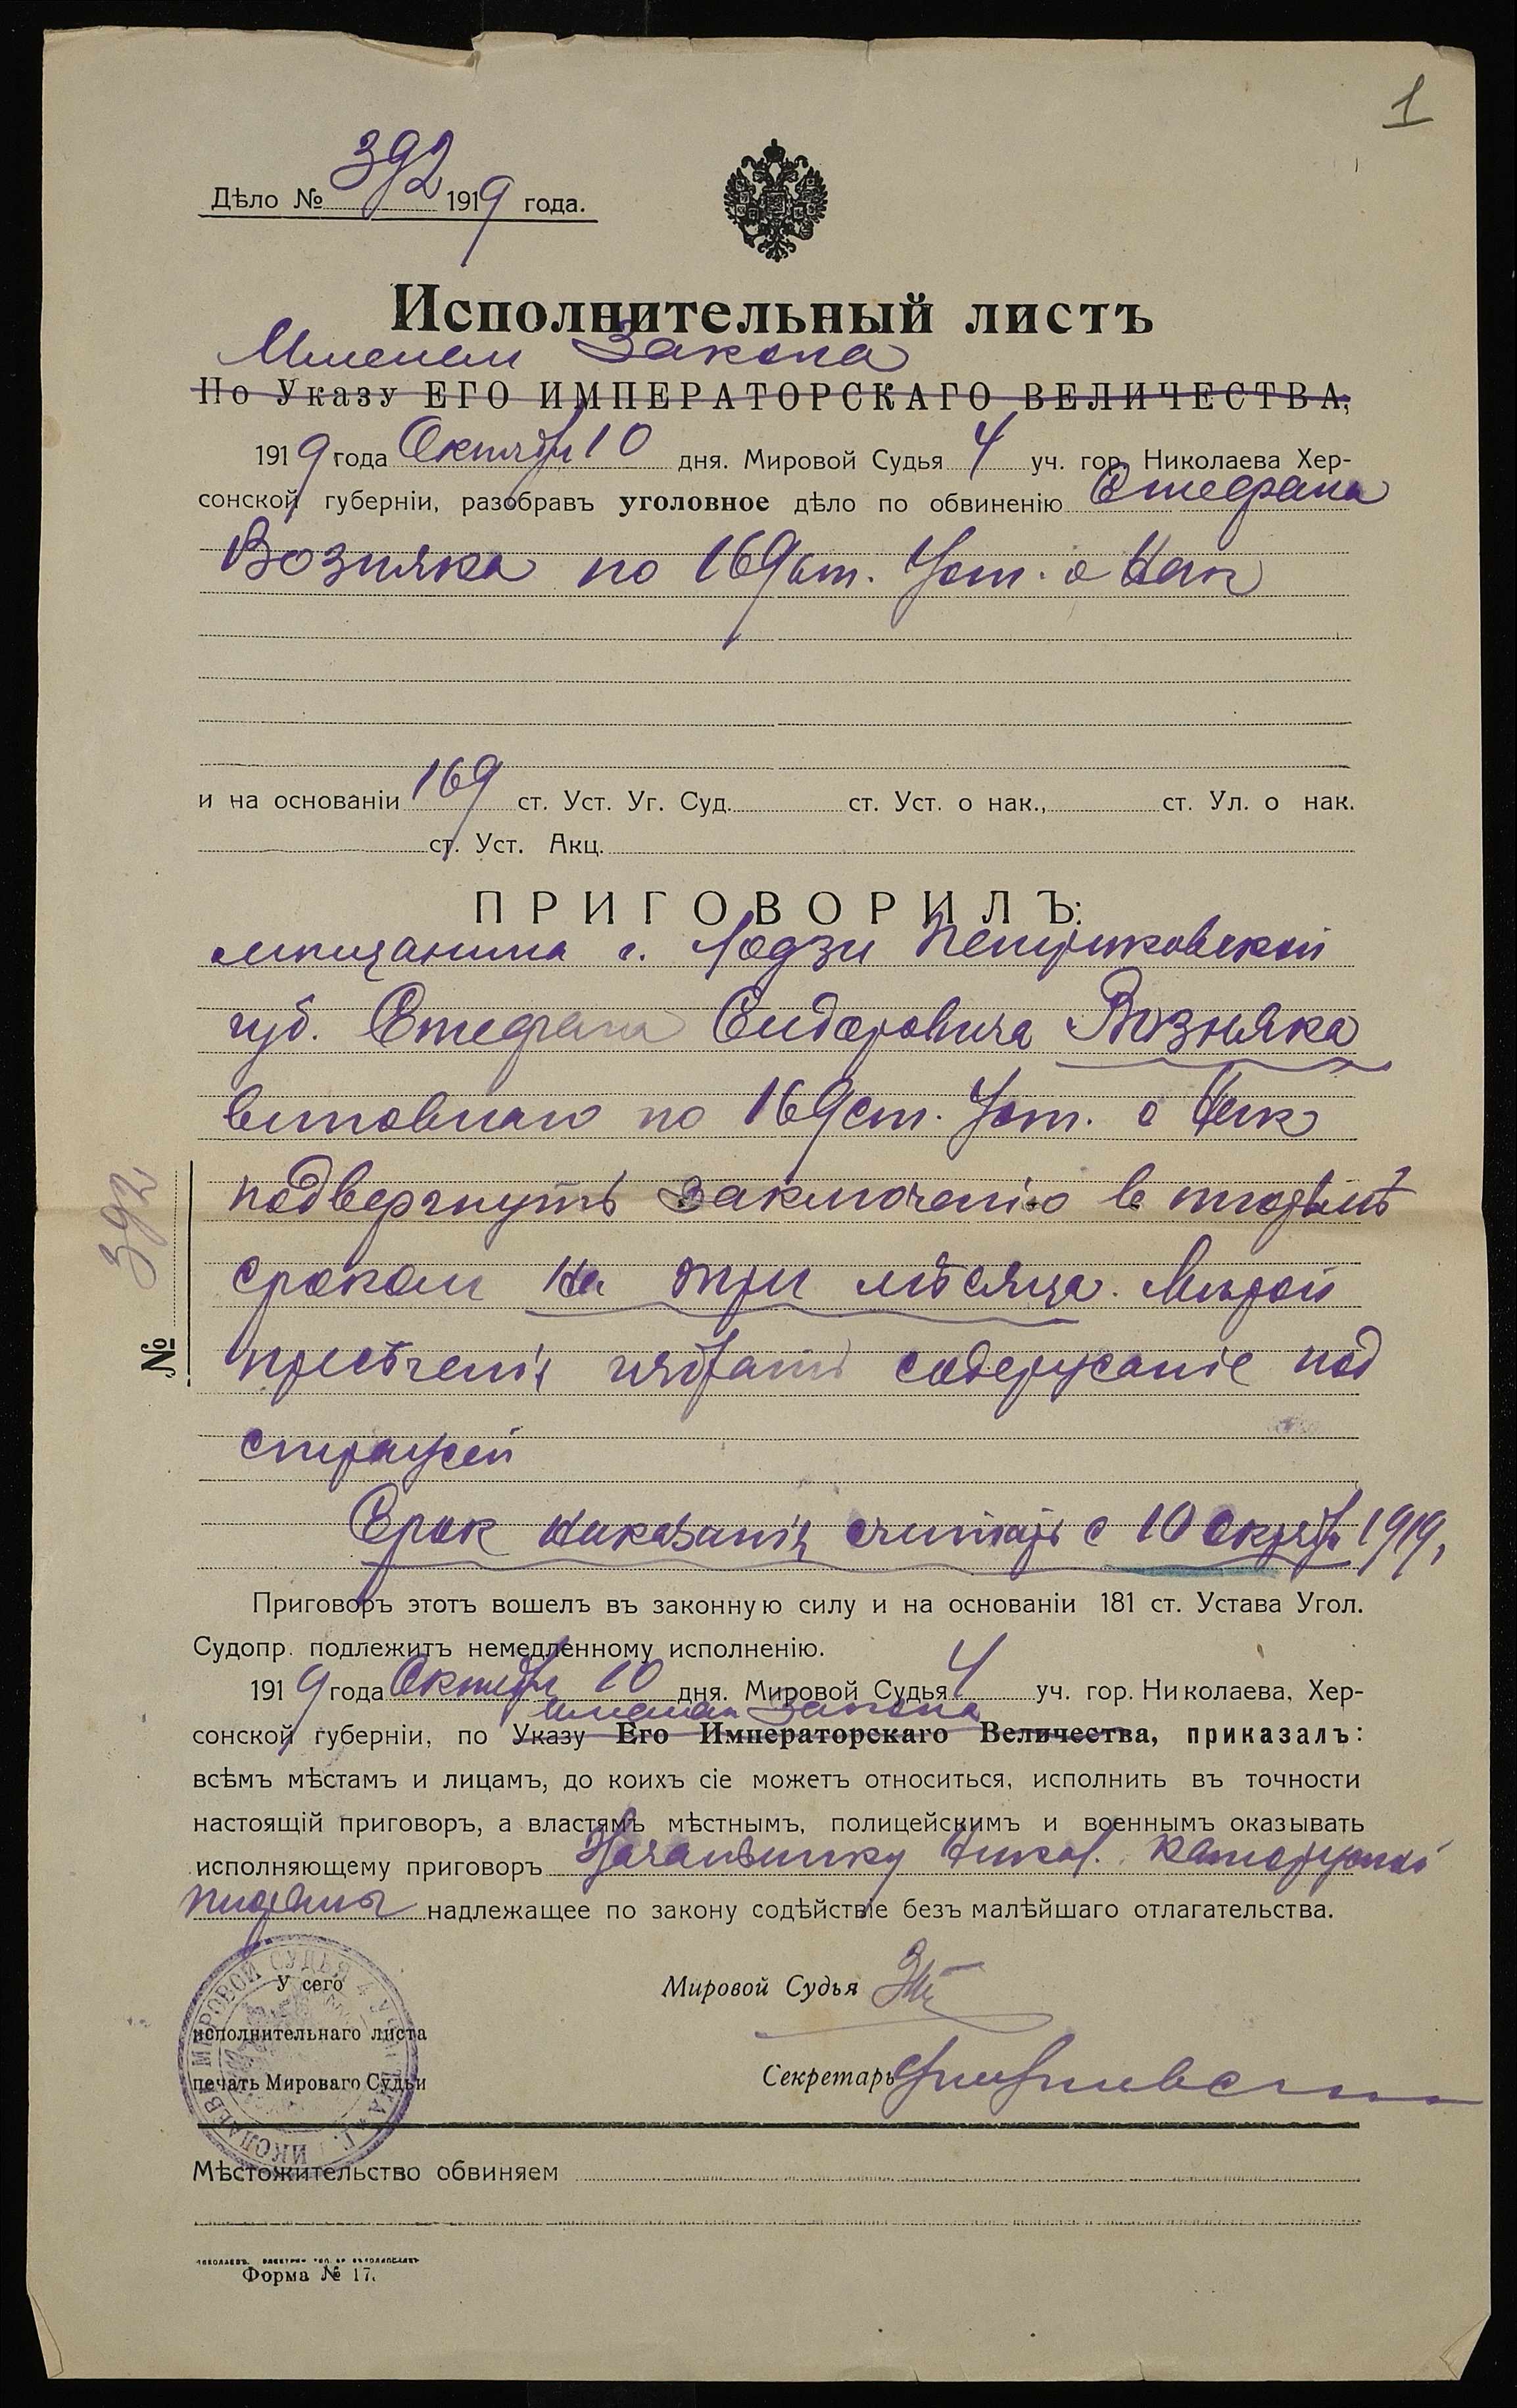 1
Дѣло № 392 1919 года.
Исполнительный листъ
Именем Закона
По Указу ЕГО ИМПЕРАТОРСКАГО ВЕЛИЧЕСТВА,
1919 года Октября 10 дня. Мировой Судья 4 уч. гор. Николаева Хер-
сонской губерніи, разобравъ уголовное дѣло по обвиненію Стефана
Возняка по 169 ст. Уст. о Нак
и на основаніи 169 ст. Уст. Уг. Суд. ст. Уст. о нак., ст. Ул. о нак.
ст. Уст. Акц.
ПРИГОВОРИЛЪ:
мещанина г. Лодзи Петроковской
губ. Стефана Сидоровича Возняка
виновнаго по 169 ст. Уст. о Нак
подвергнуть заключенію в тюрьмѣ
сроком на три мѣсяца. Мѣрой
пресѣченія избрать содержаніе под
стражей
Срок наказанія считать с 10 Октября 1919,
№ 392
Приговоръ этотъ вошелъ въ законную силу и на основаніи 181 ст. Устава Угол.
Судопр. подлежитъ немедленному исполненію.
1919 года Октября 10 дня. Мировой Судья 4 уч. гор. Николаева, Хер-
именем Закона
сонской губерніи, по Указу Его Императорскаго Величества, приказалъ:
всѣмъ мѣстамъ и лицамъ, до коихъ сіе можетъ относиться, исполнить въ точности
настоящій приговоръ, а властямъ мѣстнымъ, полицейскимъ и военнымъ оказывать
исполняющему приговоръ Начальнику Никол. Каторжной
тюрьмы надлежащее по закону содѣйствіе безъ малѣйшаго отлагательства.
У сего
исполнительнаго листа
печать Мироваго Судьи
МИРОВОЙ СУДЬЯ 4 УЧАСТКА Г. НИКОЛАЕВА
Мировой Судья
Секретарь
Мѣстожительство обвиняем
Форма № 17.